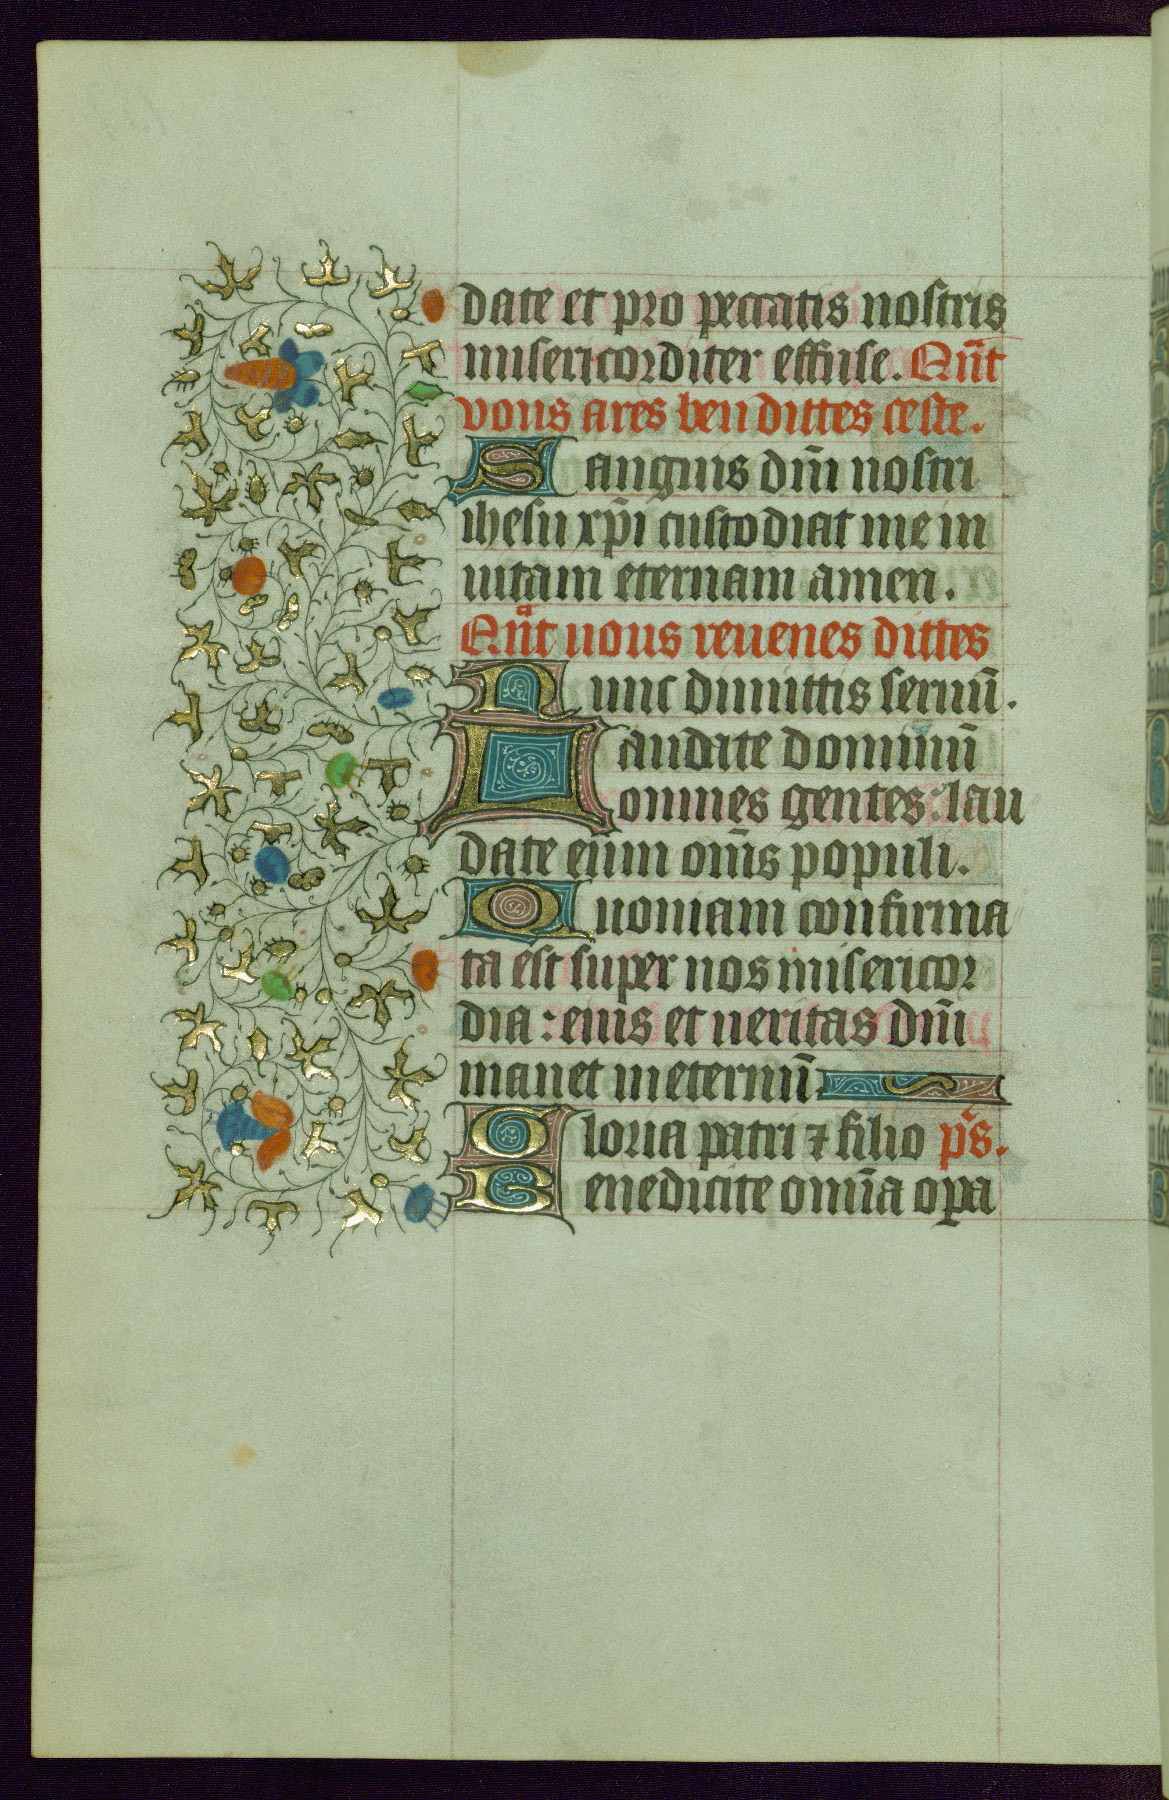 date et pro peccatis nostris
misericorditer effuse. Qñt
vous ares ben dittes ceste.
Sanguis dñi nostri
ihesu xp̃i custodiat me in
uitam eternam amen.
Qñt uous reuenes dittes
Nunc dimittis seruũ.
Laudate dominũ
omnes gentes: lau
date eum om̃s populi.
Quoniam confirma
ta est super nos misericor
dia: eius et ueritas dñi
manet ineternũ.
Gloria patri ⁊ filio p̃s.
Benedicite omĩa opa